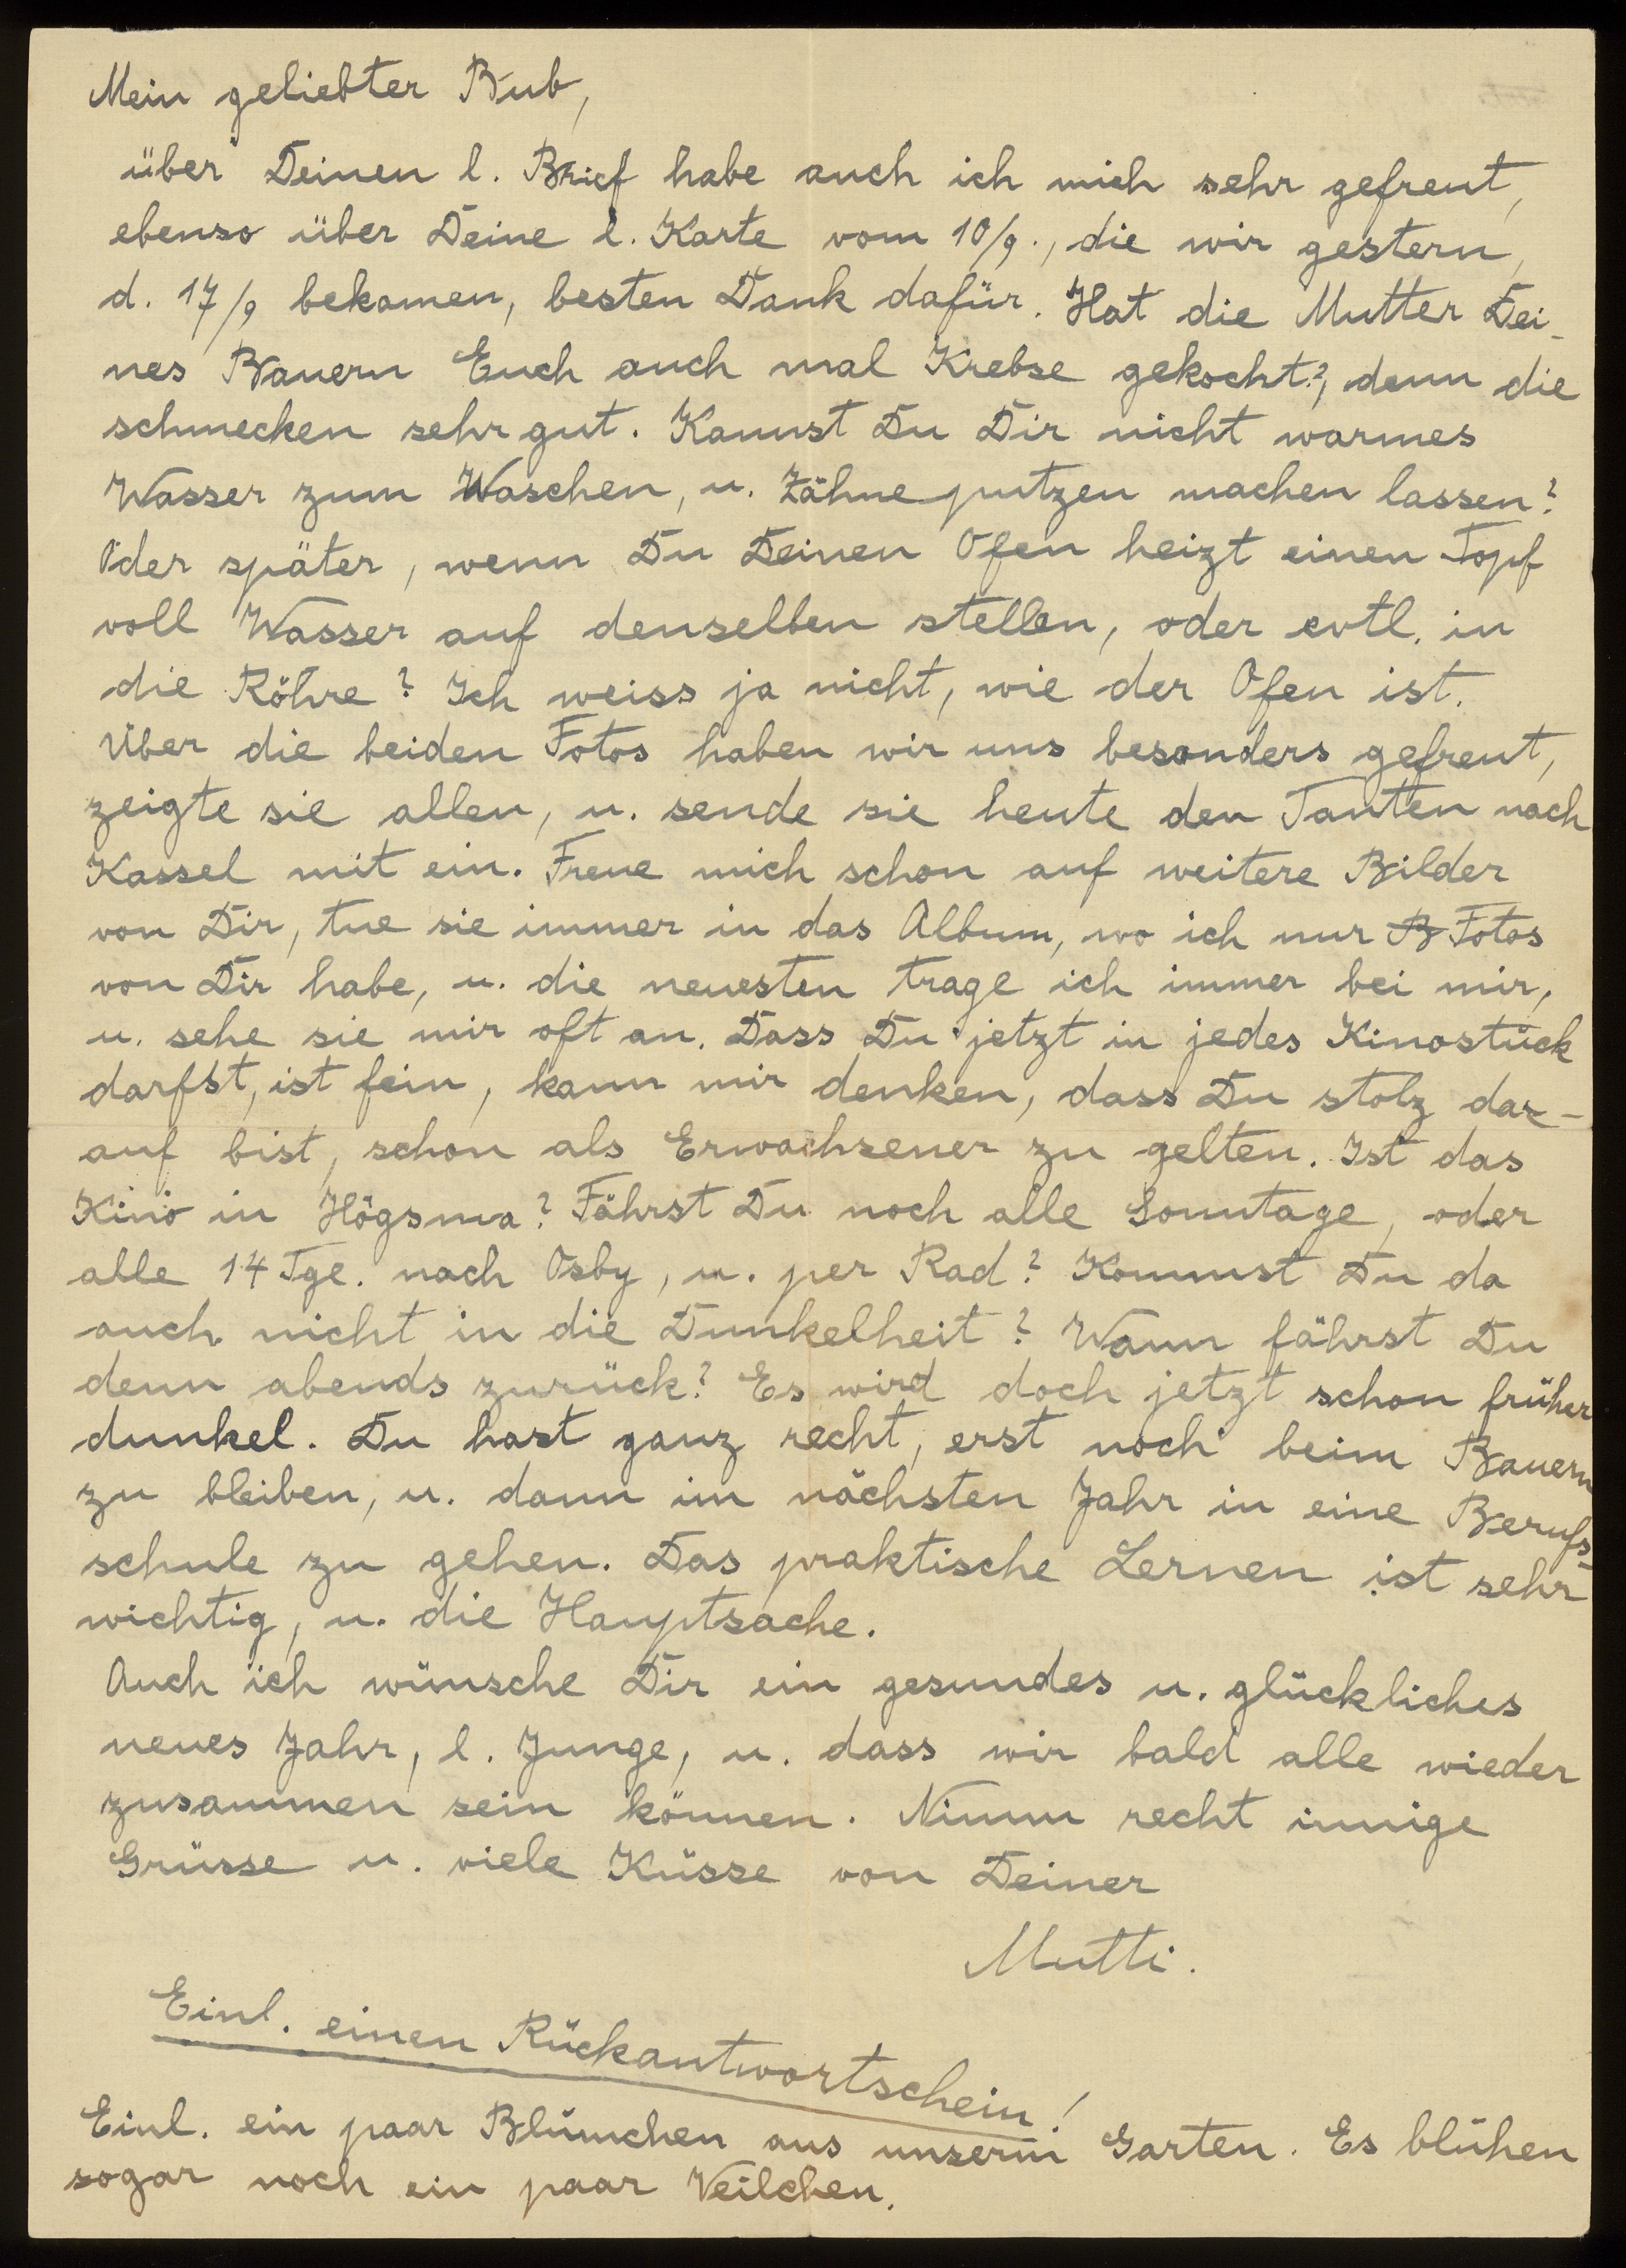 Mein geliebter Bub,
über Deinen l. Brief habe auch ich mich sehr gefreut,
ebenso über Deine l. Karte vom 10/9., die wir gestern,
d. 17/9 bekamen, besten Dank dafür. Hat die Mutter Dei-
nes Bauern Euch auch mal Krebse gekocht?, denn die
schmecken sehr gut. Kannst Du Dir nicht warmes
Wasser zum Waschen, u. Zähne putzen machen lassen?
Oder später, wenn Du Deinen Ofen heizt einen Topf
voll Wasser auf denselben stellen, oder evtl. in
die Röhre? Ich weiss ja nicht, wie der Ofen ist.
Über die beiden Fotos haben wir uns besonders gefreut,
zeigte sie allen, u. sende sie heute den Tanten nach
Kassel mit ein. Freue mich schon auf weitere Bilder
von Dir, tue sie immer in das Album, wo ich nur B Fotos
von Dir habe, u. die neuesten trage ich immer bei mir,
u. sehe sie mir oft an. Dass Du jetzt in jedes Kinostück
darfst, ist fein, kann mir denken, dass Du stolz dar-
auf bist, schon als Erwachsener zu gelten. Ist das
Kino in Högsma? Fährst Du noch alle Sonntage, oder
alle 14 Tge. nach Osby, u. per Rad? Kommst Du da
auch nicht in die Dunkelheit? Wann fährst Du
denn abends zurück? Es wird doch jetzt schon früher
dunkel. Du hast ganz recht, erst noch beim Bauern
zu bleiben, u. dann im nächsten Jahr in eine Berufs-
schule zu gehen. Das praktische Lernen ist sehr
wichtig, u. die Hauptsache.
Auch ich wünsche Dir ein gesundes u. glückliches
neues Jahr, l. Junge, u. dass wir bald alle wieder
zusammen sein können. Nimm recht innige
Grüsse u. viele Küsse von Deiner
Mutti.
Einl. einen Rückantwortschein!
Einl. ein paar Blümchen aus unserm Garten. Es blühen
sogar noch ein paar Veilchen.